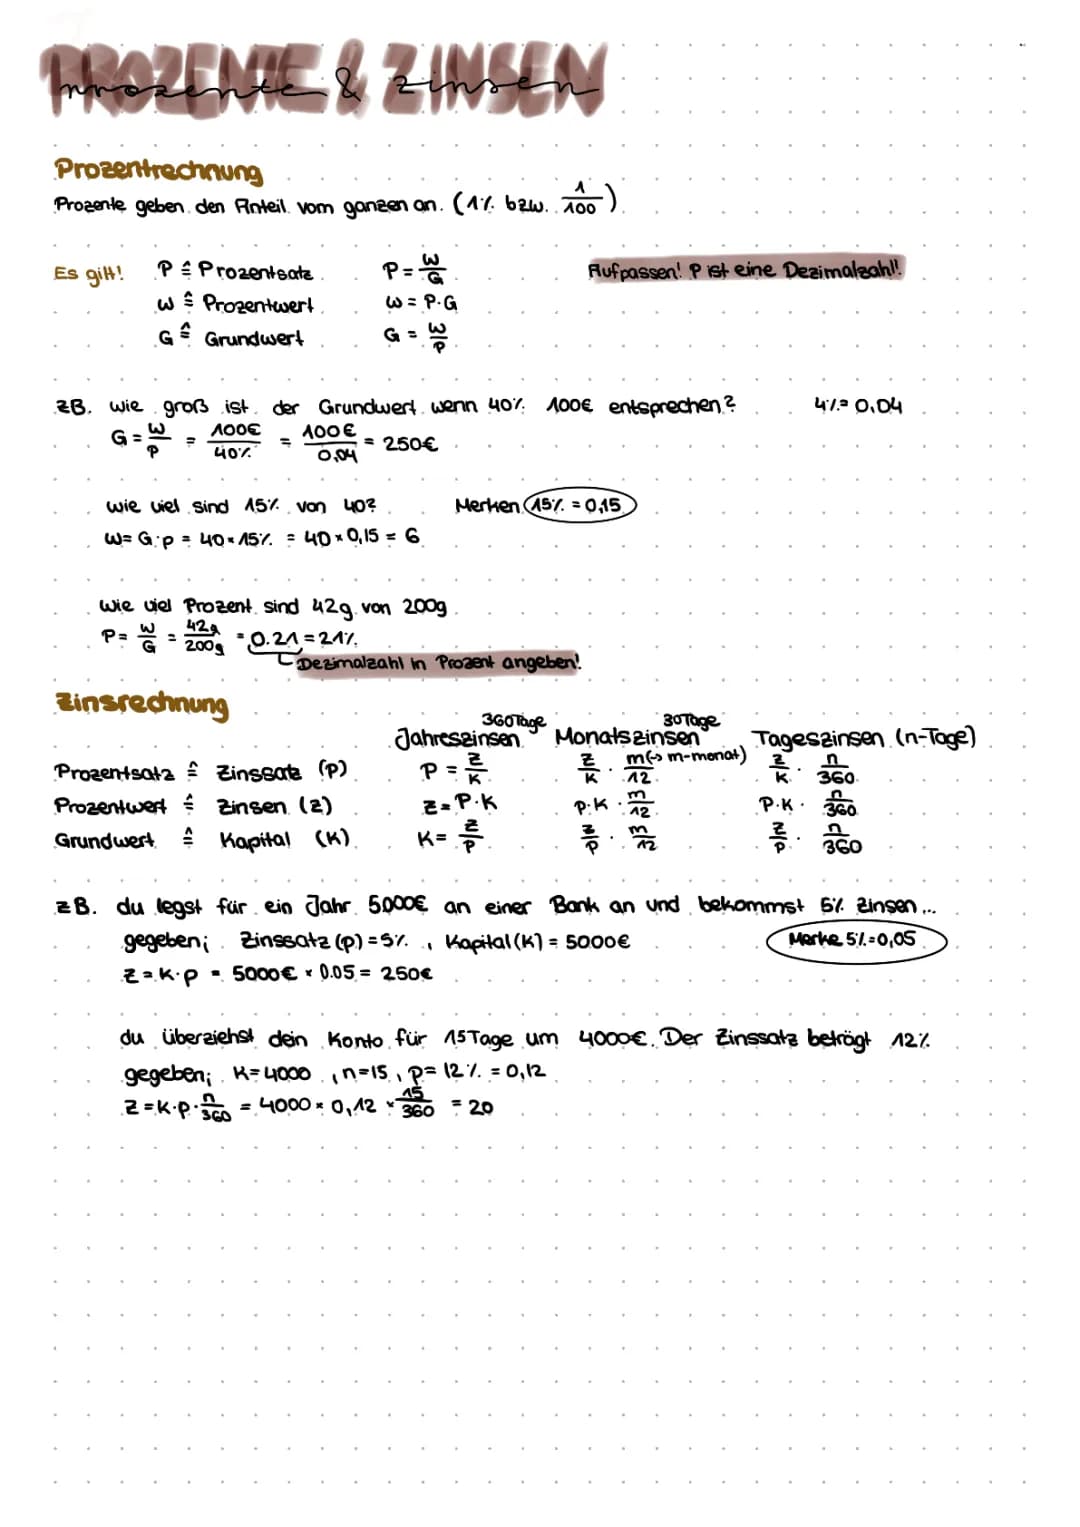 PROZENTE & ZINSEN
prozente & zinsen
Prozentrechnung
Prozente geben den Anteil vom ganzen an. (1% bzw. 1/100)
Es gilt! P ≙ Prozentsatz P = W/G Aufpassen! P ist eine Dezimalzahl!
W ≙ Prozentwert W = P·G
G ≙ Grundwert G = W/P
zB. wie groß ist der Grundwert wenn 40% 100€ entsprechen? 4% = 0,04
G = W/P = 100€/40% = 100€/0,04 = 250€
wie viel sind 15% von 40? Merken 15% = 0,15
W = G·p = 40 × 15% = 40 × 0,15 = 6
Wie viel Prozent sind 42g von 200g
P = W/G = 42g/200g = 0.21 = 21%
Dezimalzahl in Prozent angeben!
Zinsrechnung
360Tage 30Tage
Jahreszinsen Monatszinsen Tageszinsen (n-Tage)
Prozentsatz ≙ Zinssatz (p) P = Z/K Z/K · m(→ m-monat)/12 Z/K · n/360
Prozentwert ≙ Zinsen (Z) Z = P·K P·K · m/12 P·K · n/360
Grundwert ≙ Kapital (K) K = Z/P Z/P · m/12 Z/P · n/360
zB. du legst für ein Jahr 5000€ an einer Bank an und bekommst 5% Zinsen...
gegeben; Zinssatz (p) = 5%, Kapital (K) = 5000€ Merke 5% = 0,05
Z = K·p = 5000€ × 0.05 = 250€
du überziehst dein Konto für 15Tage um 4000€. Der Zinssatz beträgt 12%
gegeben; K = 4000, n = 15, p = 12% = 0,12
Z = K·p·n/360 = 4000 × 0,12 × 15/360 = 20